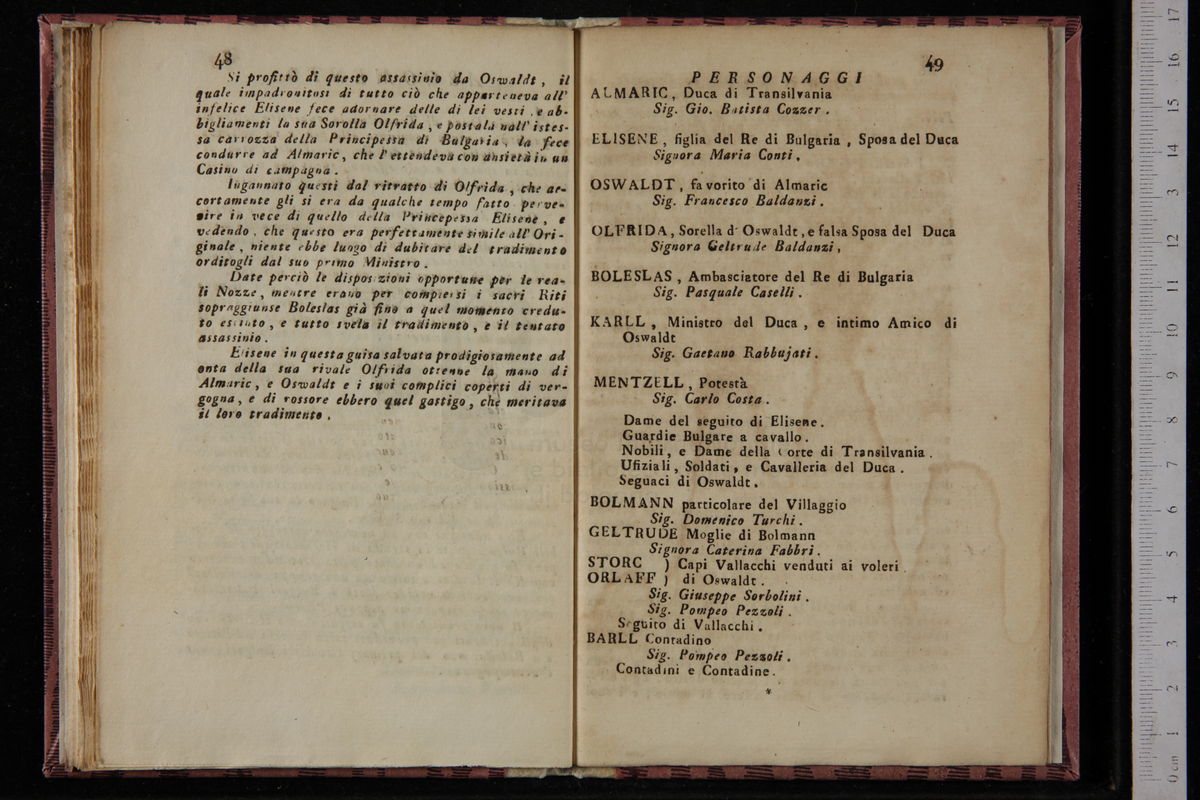 48
Si profittò di questo assassinio da Oswaldt, il
quale impadronitosi di tutto ciò che apparteneva all'
infelice Elisene fece adornare delle di lei vesti, e ab-
bigliamenti la sua Sorolla Olfrida, e postala nall' istes-
sa carrozza della Principessa di Bulgaria, la fece
condurre ad Almaric, che l' ettendeva con ansietà in un
Casino di campagna.
Ingannato questi dal ritratto di Olfrida, che ac-
cortamente gli si era da qualche tempo fatto perve-
nire in vece di quello della Princepessa Elisene, e
vedendo, che questo era perfettamente simile all' Ori-
ginale, niente ebbe luogo di dubitare del tradimento
orditogli dal suo primo Ministro.
Date perciò le disposizioni opportune per le rea-
li Nozze, mentre erano per compiersi i sacri Riti
sopraggiunse Boleslas già fino a quel momento credu-
to estinto, e tutto svela il tradimento, e il tentato
assassinio.
Elisene in questa guisa salvata prodigiosamente ad
onta della sua rivale Olfrida ottenne la mano di
Almaric, e Oswaldt e i suoi complici coperti di ver-
gogna, e di rossore ebbero quel gastigo, che meritava
il loro tradimento.
49
PERSONAGGI
ALMARIC, Duca di Transilvania
Sig. Gio. Batista Cozzer.
ELISENE, figlia del Re di Bulgaria, Sposa del Duca
Signora Maria Conti.
OSWALDT, favorito di Almaric
Sig. Francesco Baldanzi.
OLFRIDA, Sorella d' Oswaldt, e falsa Sposa del Duca
Signora Geltrude Baldanzi,
BOLESLAS, Ambasciatore del Re di Bulgaria
Sig. Pasquale Caselli.
KARLL, Ministro del Duca, e intimo Amico di
Oswaldt
Sig. Gaetano Rabbujati.
MENTZELL, Potestà
Sig. Carlo Costa.
Dame del seguito di Elisene.
Guardie Bulgare a cavallo.
Nobili, e Dame della Corte di Transilvania.
Ufiziali, Soldati, e Cavalleria del Duca.
Seguaci di Oswaldt.
BOLMANN particolare del Villaggio
Sig. Domenico Turchi.
GELTRUDE Moglie di Bolmann
Signora Caterina Fabbri.
STORC ) Capi Vallacchi venduti ai voleri
ORLAFF ) di Oswaldt.
Sig. Giuseppe Sorbolini.
Sig. Pompeo Pezzoli.
Seguito di Vallacchi.
BARLL Contadino
Sig. Pompeo Pezzoli.
Contadini e Contadine.
*
0 cm 1 2 3 4 5 6 7 8 9 10 11 12 13 14 15 16 17